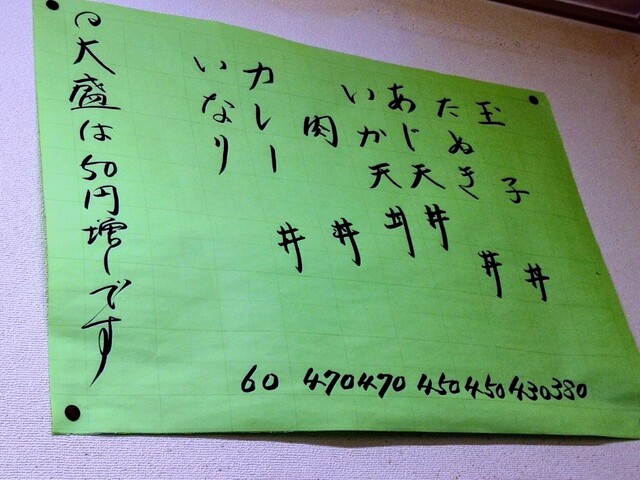 玉子丼 380
たぬき丼 430
あじ天丼 450
いか天丼 450
肉丼 470
カレー丼 470
いなり 60
○大盛は50円増しです